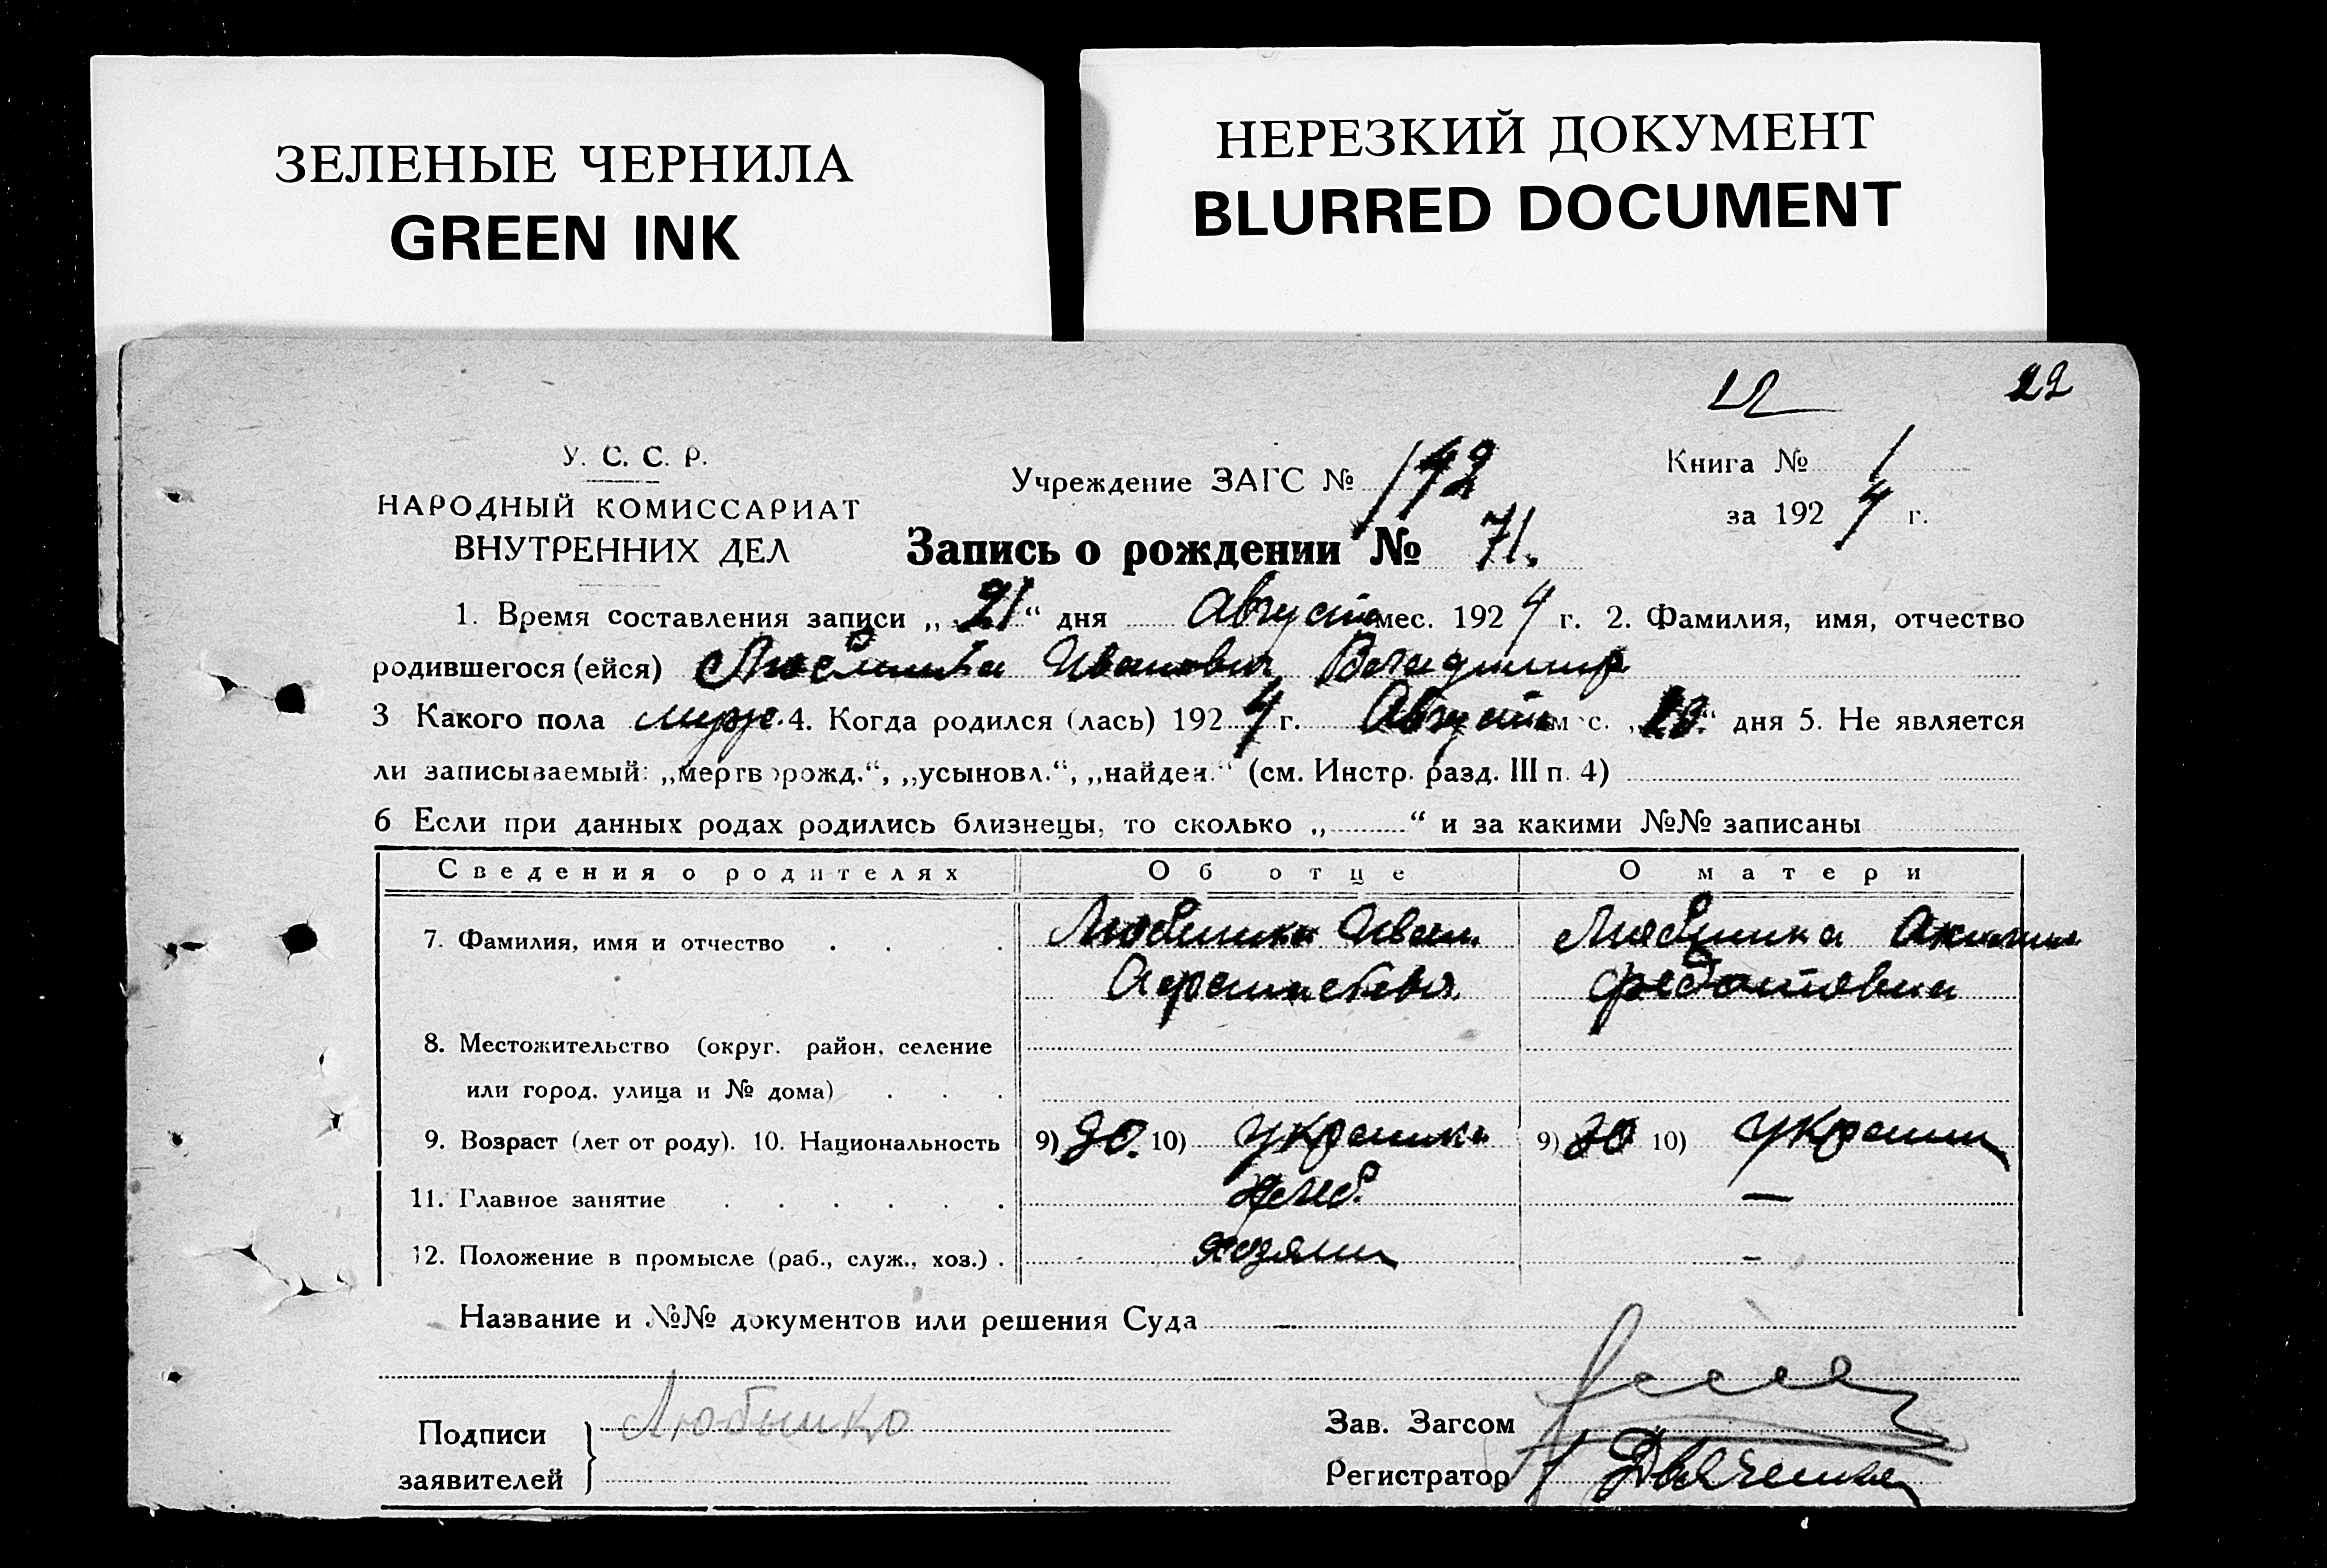 ЗЕЛЕНЫЕ ЧЕРНИЛА
GREEN INK
НЕРЕЗКИЙ ДОКУМЕНТ
BLURRED DOCUMENT
12 22
У. С. С. Р.
НАРОДНЫЙ КОМИССАРИАТ
ВНУТРЕННИХ ДЕЛ
Учреждение ЗАГС №
Книга № 1
за 1924 г.
Запись о рождении № 71.
1. Время составления записи „21“ дня Август мес. 1924 г. 2. Фамилия, имя, отчество
родившегося (ейся) Иванович Владимир
3 Какого пола муж. 4. Когда родился (лась) 1924 г. Август мес. „ “ дня 5. Не является
ли записываемый: „мертворожд.“, „усыновл.“, „найден.“ (см. Инстр. разд. III п. 4)
6 Если при данных родах родились близнецы, то сколько „ “ и за какими №№ записаны
Сведения о родителях Об отце О матери
7. Фамилия, имя и отчество Иван
Федотовна
8. Местожительство (округ. район, селение
или город, улица и № дома)
9. Возраст (лет от роду). 10. Национальность 9) 10) 9) 10)
11. Главное занятие хлеб. —
12. Положение в промысле (раб., служ., хоз.) хозяин –
Название и №№ документов или решения Суда —
Подписи
заявителей
Зав. Загсом
Регистратор